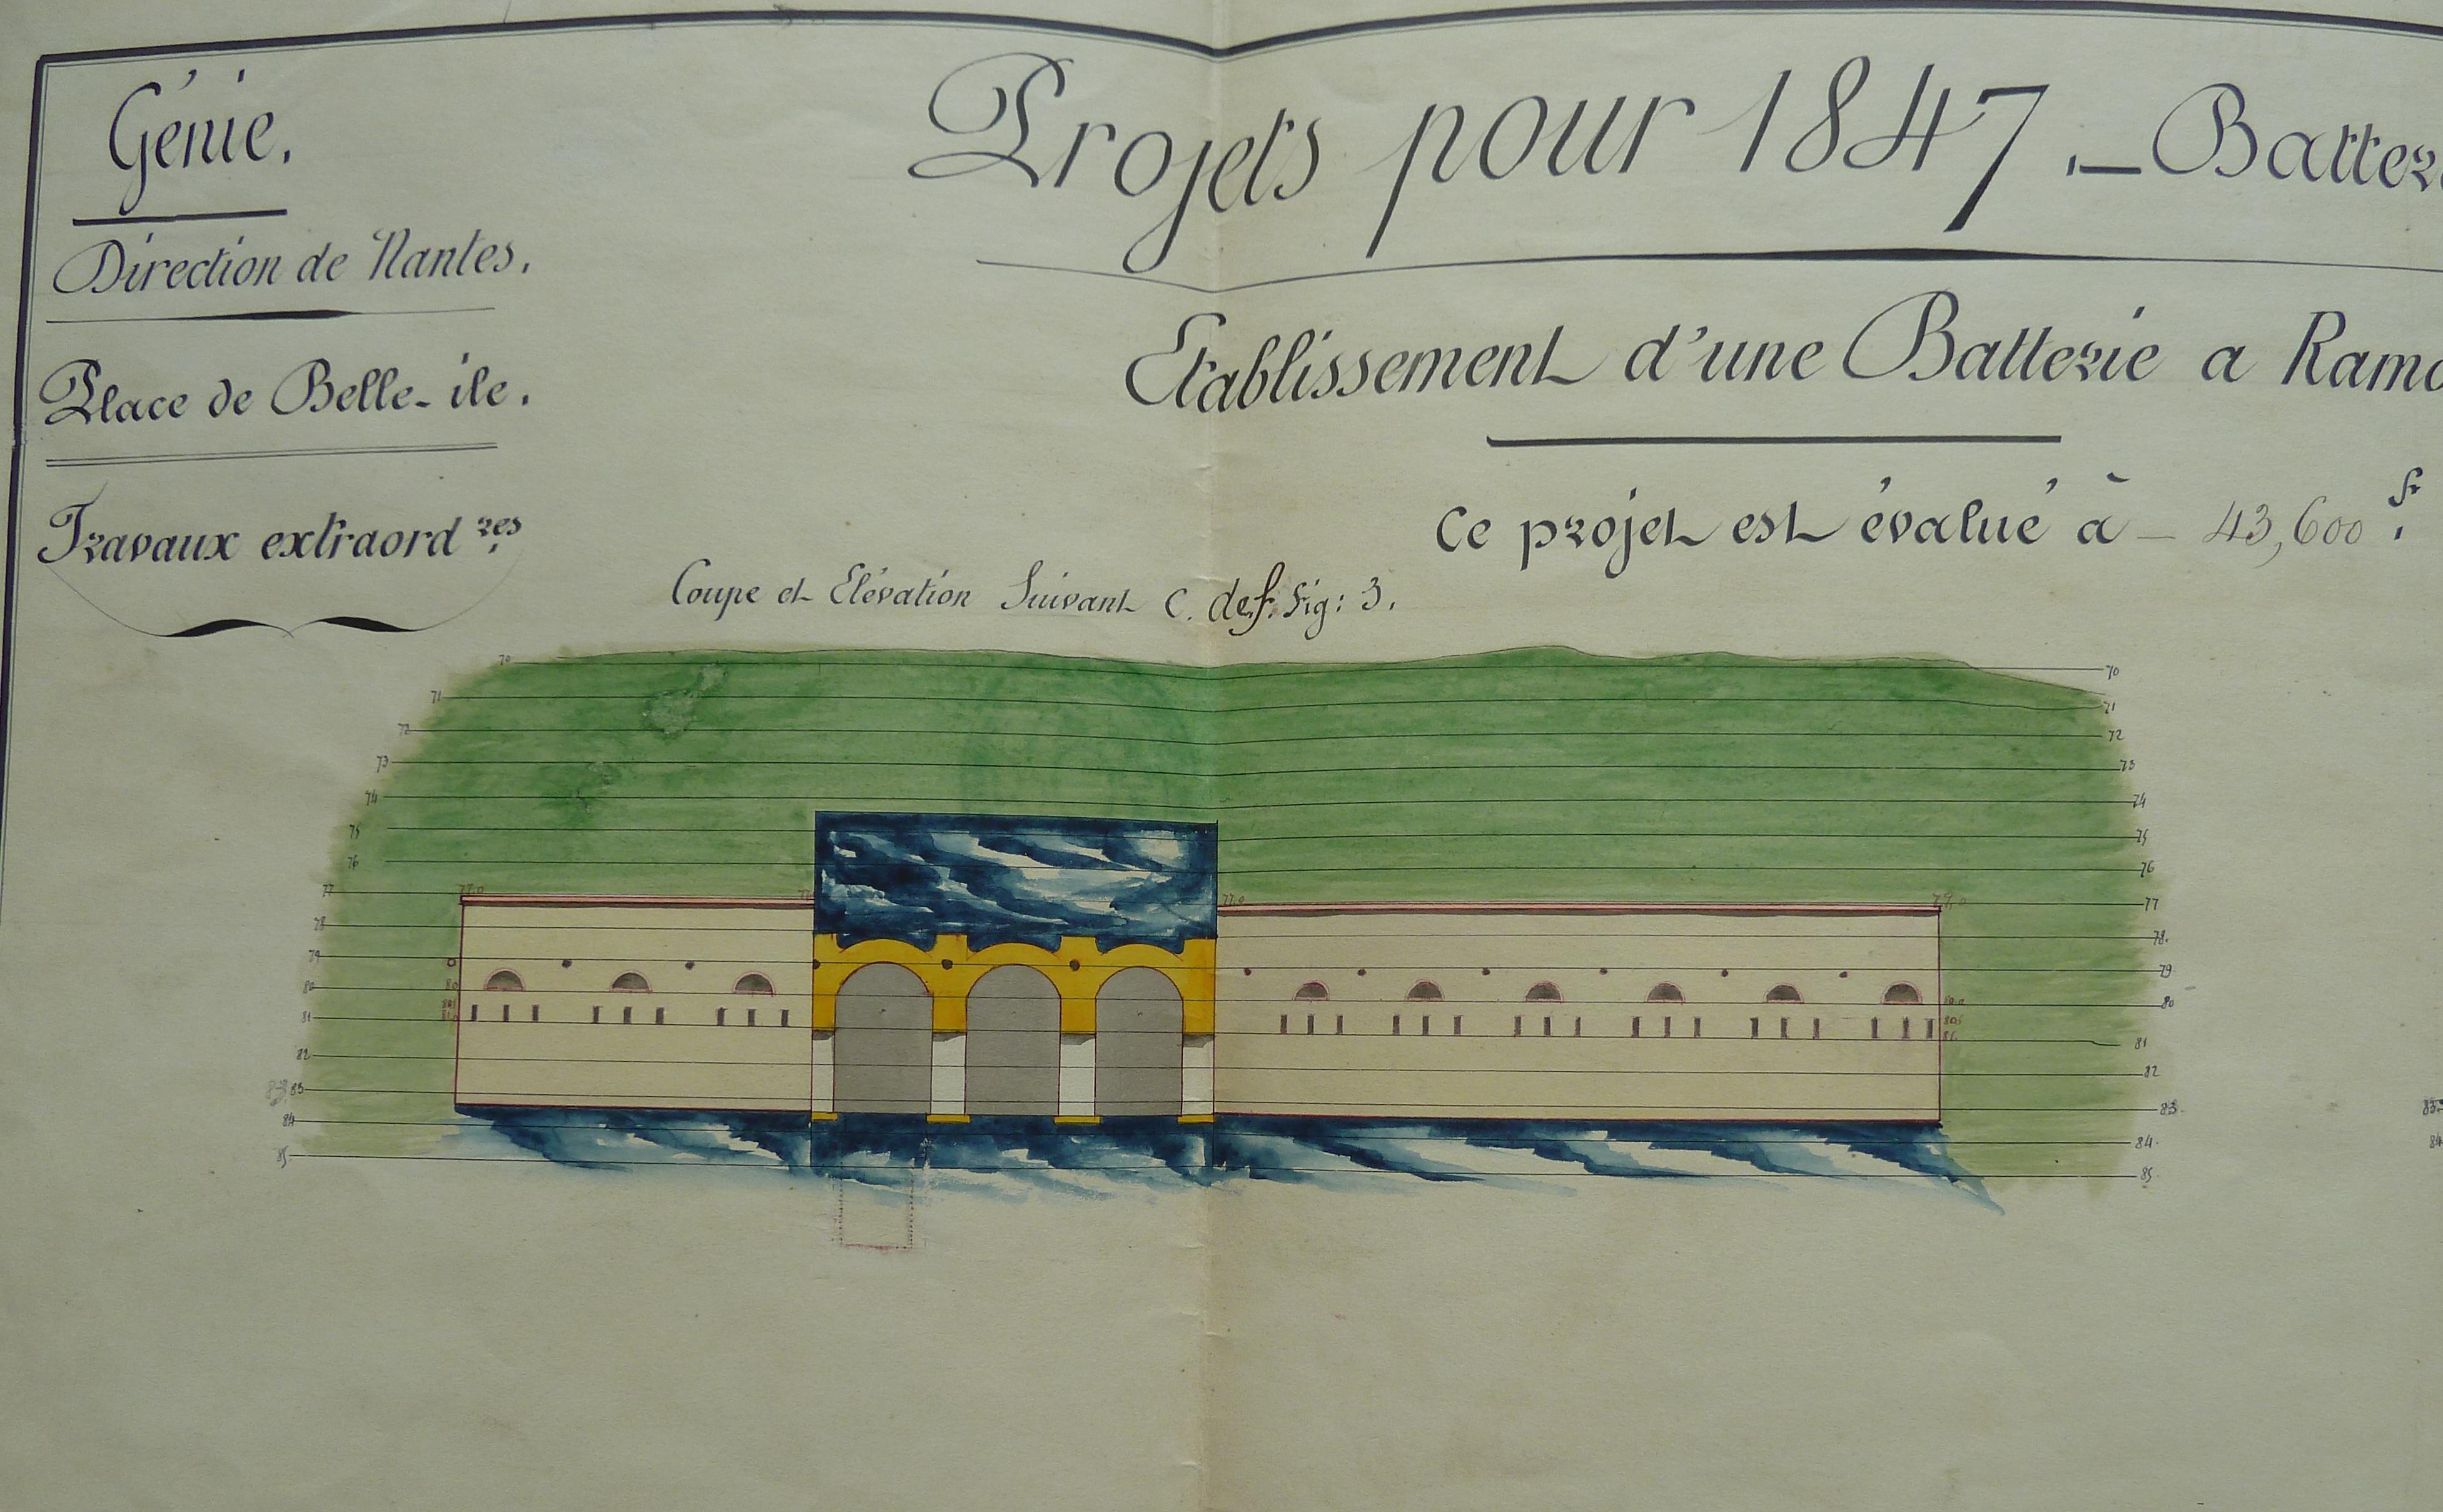 Génie.
Direction de Nantes.
Place de Belle-ile.
Travaux extraord.res
Projets pour 1847.—Batter
Etablissement d'une Batterie a Ram
Ce projet est évalué à — 43,600 fr.
Coupe et Elévation Suivant c. def. Fig: 3.
70 70
71 71
72 72
73 73
74 74
75 75
76 76
77 77,0 77,0 77,0 77
78 78.
79 79
80 80 80
81 81. 81
82 82
83 83 83.
84 84.
85 85